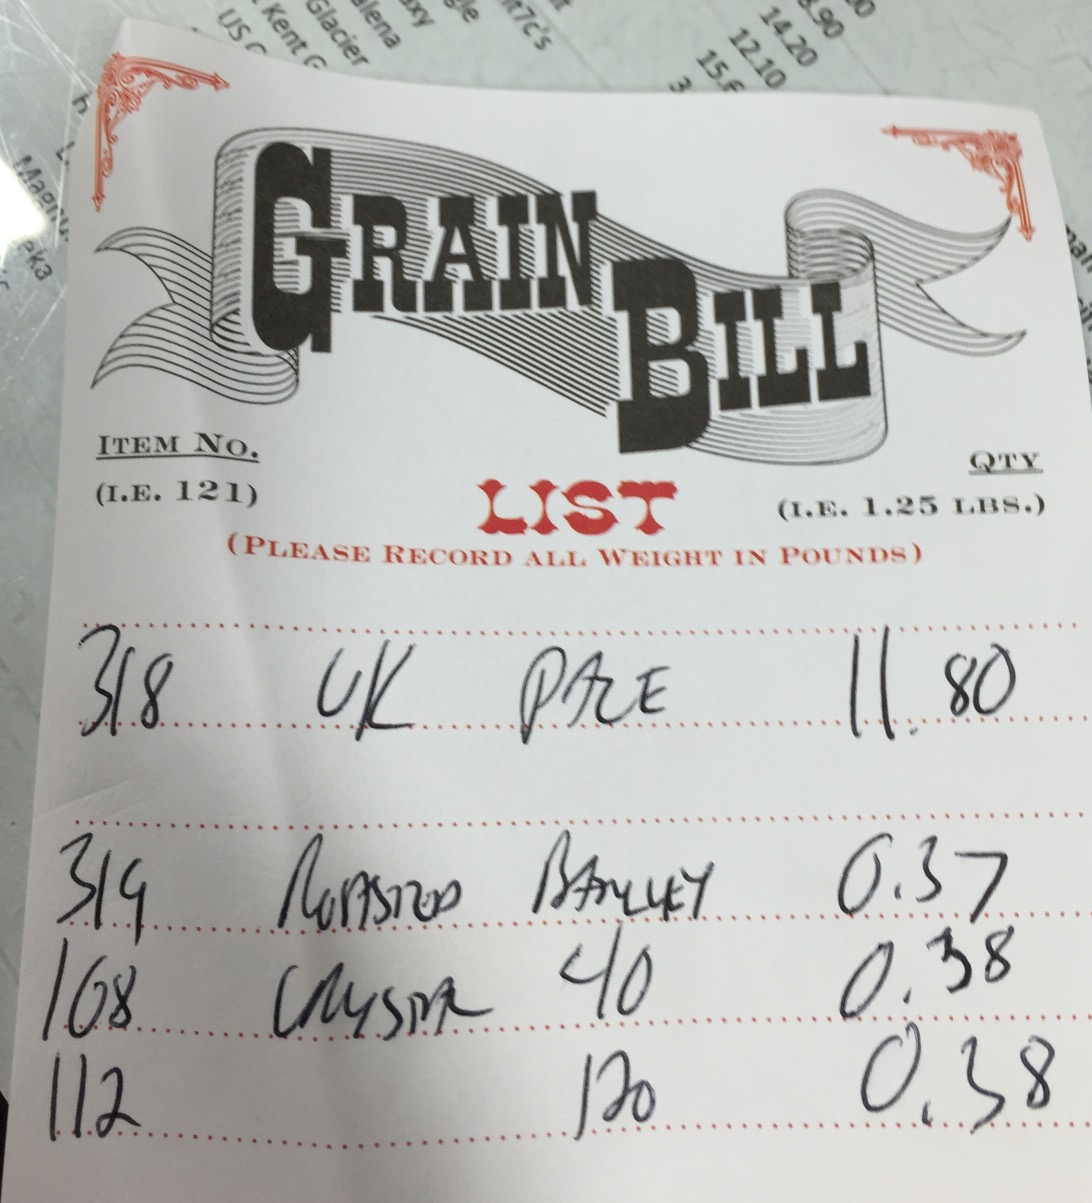 US G
Kent G
Glacier
14.20
12.10
GRAIN
BILL
ITEM NO.
QTY
(I.E. 121)
LIST
(I.E. 1.25 LBS.)
(PLEASE RECORD ALL WEIGHT IN POUNDS)
318 UK PALE 11.80
319 ROASTED BARLEY 0.37
108 CRYSTAL 40 0.38
112 120 0.38